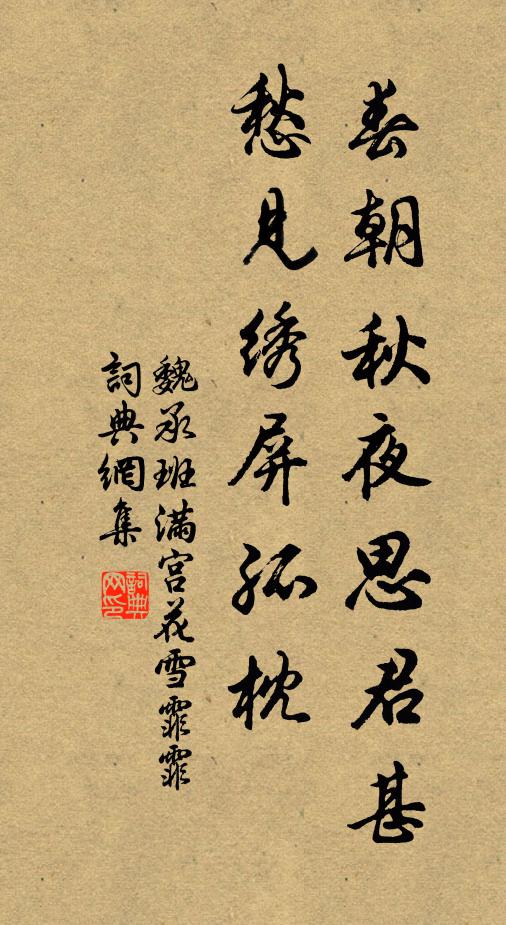 春朝秋夜思君甚
愁見绣屏孤枕
魏承班滿宮花雪霏霏
詞典網集
詞典网印